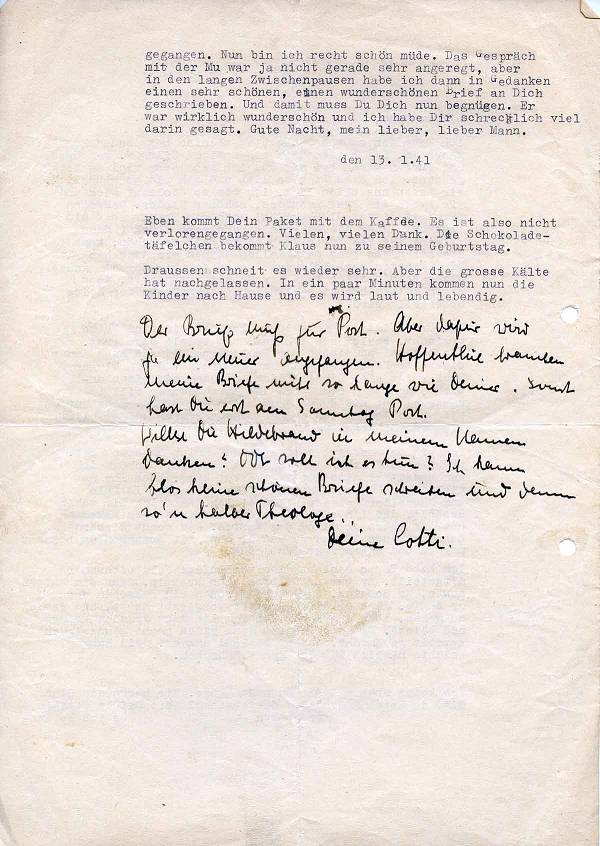 gegangen. Nun bin ich recht schön müde. Das Gespräch
mit der Mu war ja nicht gerade sehr angeregt, aber
in den langen Zwischenpausen habe ich dann in Gedanken
einen sehr schönen, einen wunderschönen Brief an Dich
geschrieben. Und damit muss Du Dich nun begnügen. Er
war wirklich wunderschön und ich habe Dir schrecklich viel
darin gesagt. Gute Nacht, mein lieber, lieber Mann.
den 13. 1.41
Eben kommt Dein Paket mit dem Kaffde. Es ist also nicht
verlorengegangen. Vielen, vielen Dank. Die Schokolade-
täfelchen bekommt Klaus nun zu seinem Geburtstag.
Draussen schneit es wieder sehr. Aber die grosse Kälte
hat nachgelassen. In ein paar Minuten kommen nun die
Kinder nach Hause und es wird laut und lebendig.
Der Brief muß zur Post. Aber dafür wird
ja ein neuer angefangen. Hoffentlich brauchen
meine Briefe nicht so lange wie Deine. Sonst
hast Du erst am Sonntag Post.
Willst Du Hildebrand in meinem Namen
danken? Oder soll ich es tun? Ich kann
blos keine schönen Briefe schreiben und denn
so'n halber Theologe..
Deine Lotti.